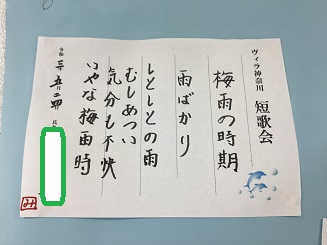 ヴィラ神奈川 短歌会
梅雨の時期
雨ばかり
しとしとの雨
むしあつい
気分も不快
いやな梅雨時
令和三年五月二四日